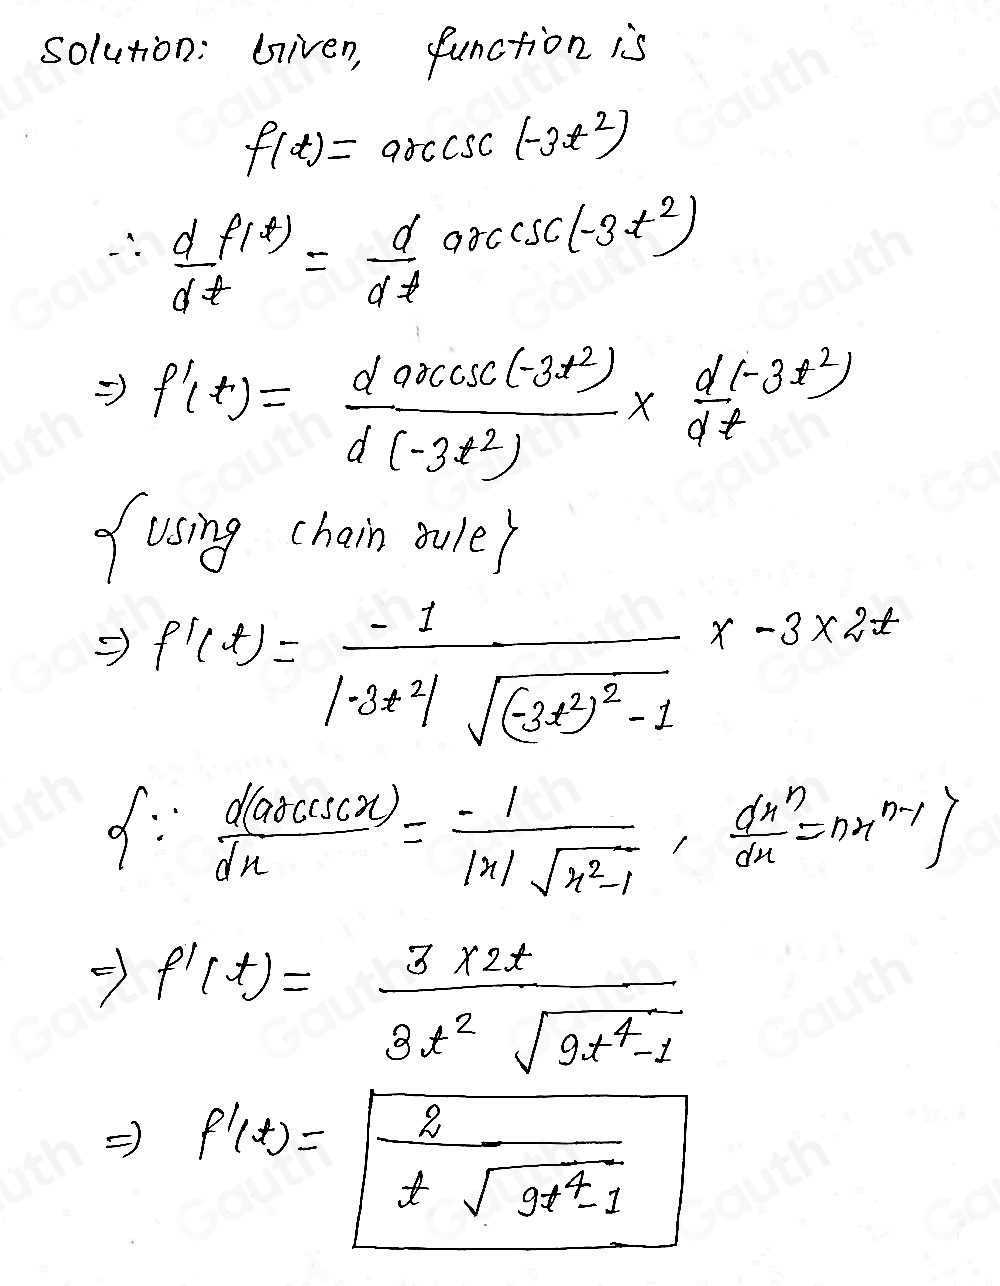 Solution: Given, function is
f(t) = arccsc (-3t²)
∴ d f(t)/dt = d/dt arccsc(-3t²)
⇒ f'(t) = d arccsc(-3t²)/d(-3t²) × d(-3t²)/dt
{Using chain rule}
⇒ f'(t) = -1/(|-3t²| √((-3t²)² - 1)) × -3 × 2t
{∵ d(arccscx)/dx = -1/(|x| √(x²-1)), dxⁿ/dx = nxⁿ⁻¹}
⇒ f'(t) = 3×2t/(3t² √(9t⁴-1))
⇒ f'(t) = 2/(t √(9t⁴-1))
Gauth